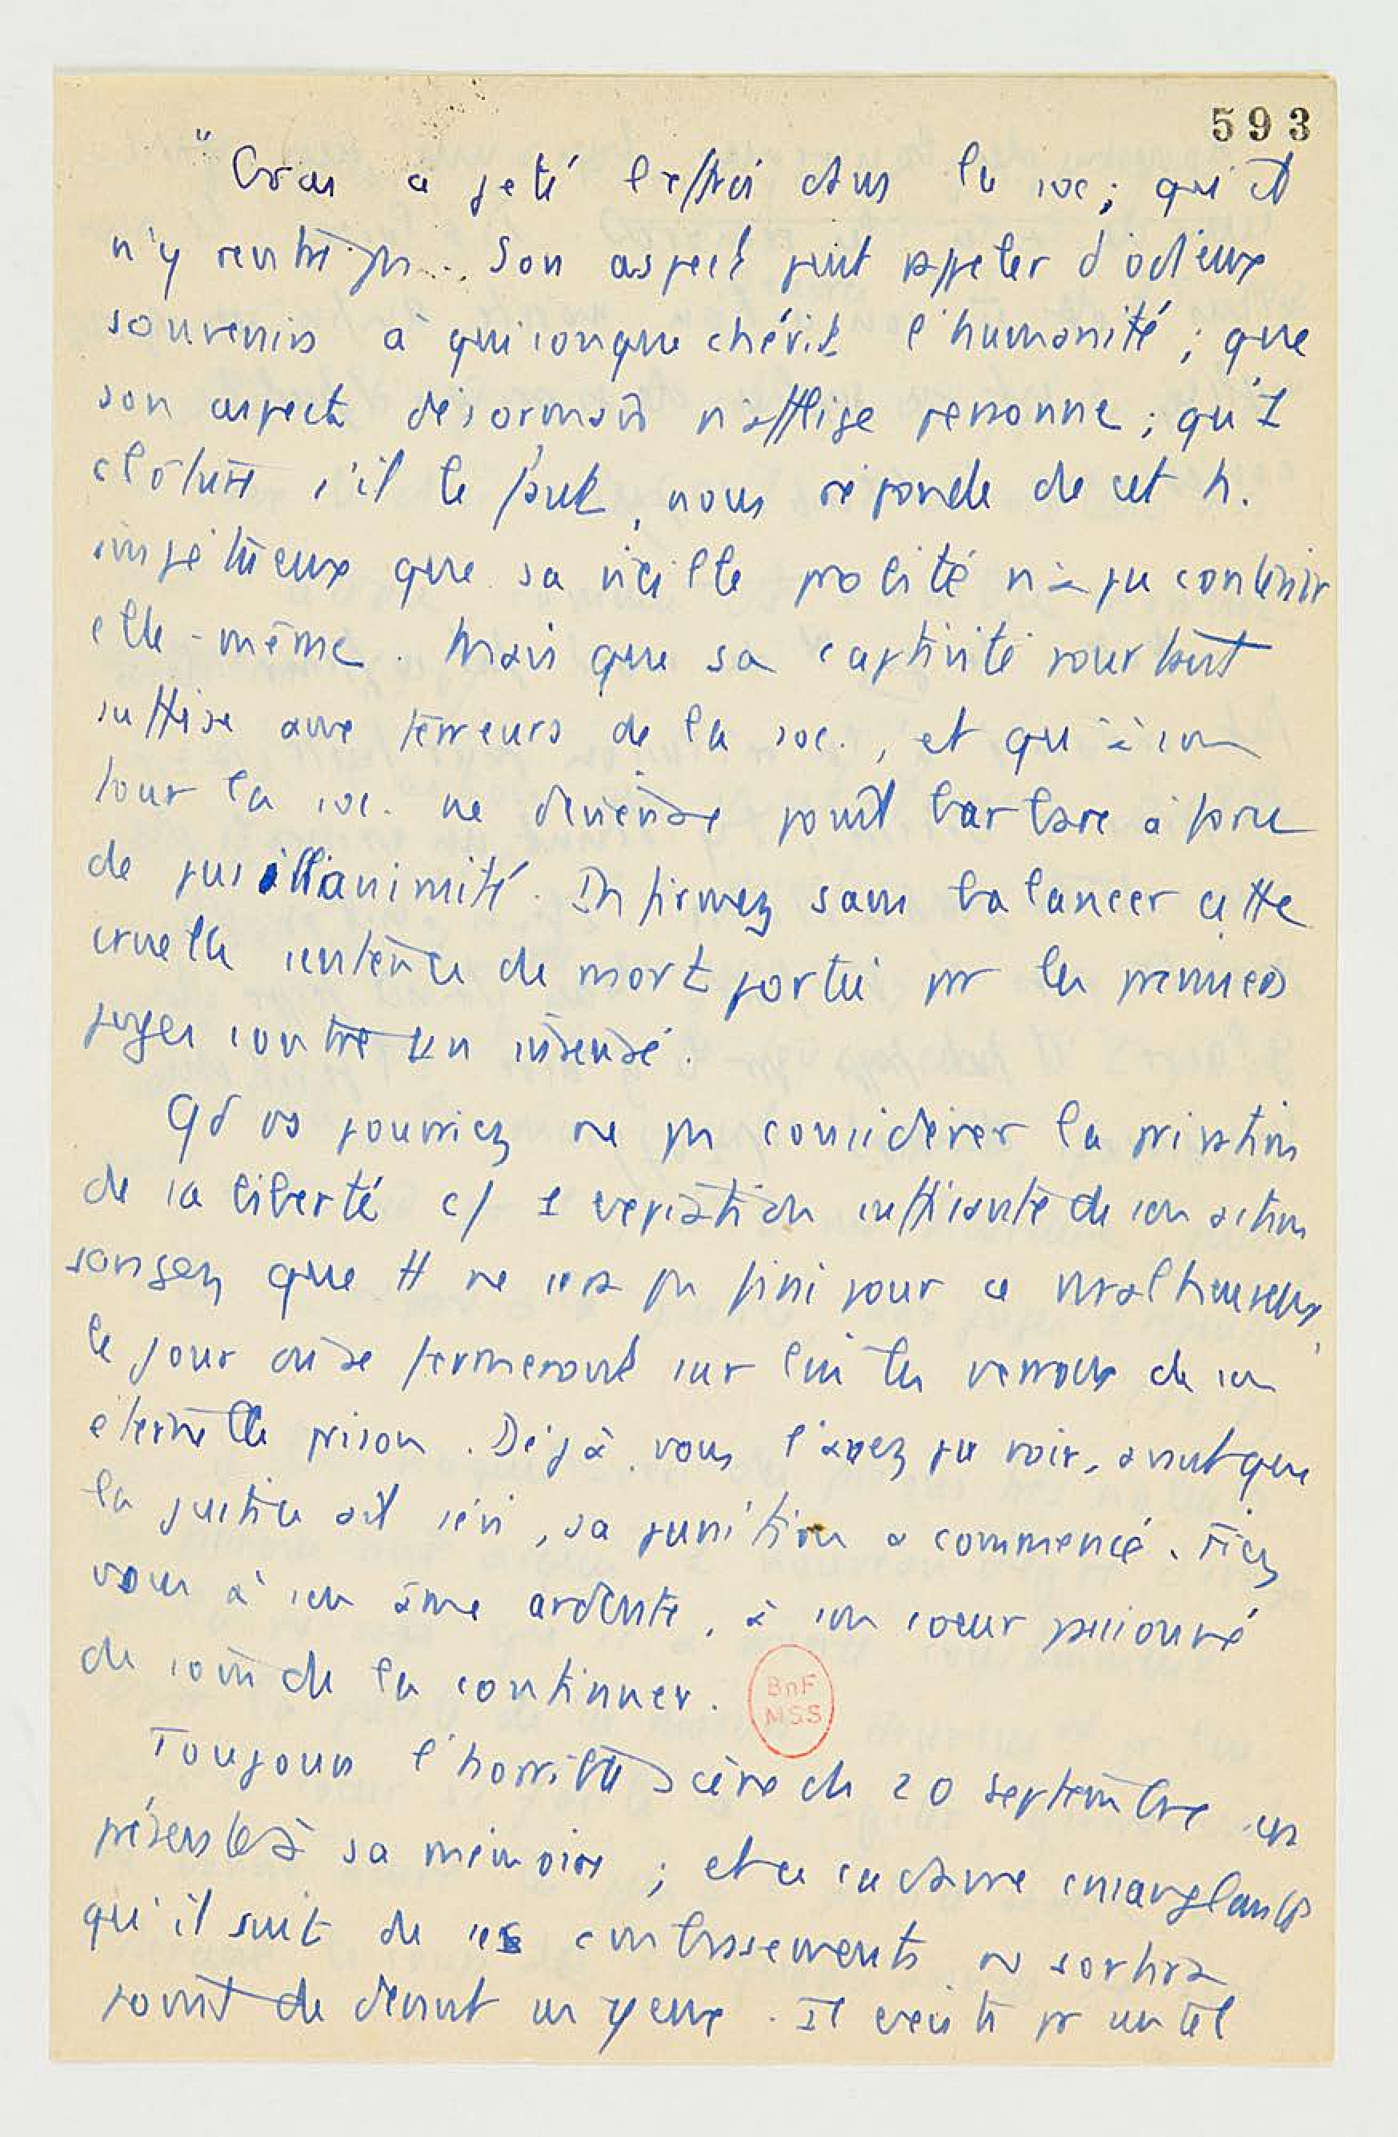 593
" Gras a jeté l'effroi dans la soc; qu'il
n'y rentre pas. Son aspect peut rappeler d'odieux
souvenirs à quiconque chérit l'humanité ; que
son aspect désormais n'afflige personne ; qu'1
clôture, s'il le faut, nous réponde de cet h.
impétueux que sa vieille probité n'a pu contenir
elle-même. Mais que sa captivité pourtant
suffise aux terreurs de la soc., et qu'à son
tour la soc. ne devienne point barbare à force
de pusillanimité. Infirmez sans balancer cette
cruelle sentence de mort portée pr les premiers
juges contre un insensé.
Qd vs pourriez ne pas considérer la privation
de sa liberté c/ 1 expiation suffisante de son action
songez que tt ne sera pas fini pour ce malheureux,
le jour où se fermeront sur lui les verrous de son
éternelle prison. Déjà, vous l'avez pu voir, avant que
la justice ait sévi, sa punition a commencé. Fiez
vous à son âme ardente, à son coeur passionné
du soin de la continuer.
BnF
MSS
Toujours l'horrible scène du 20 septembre sera
présente à sa mémoire ; et ce cadavre ensanglanté
qu'il suit de ses embrassements ne sortira
point de devant ses yeux. Il exista pr un tel